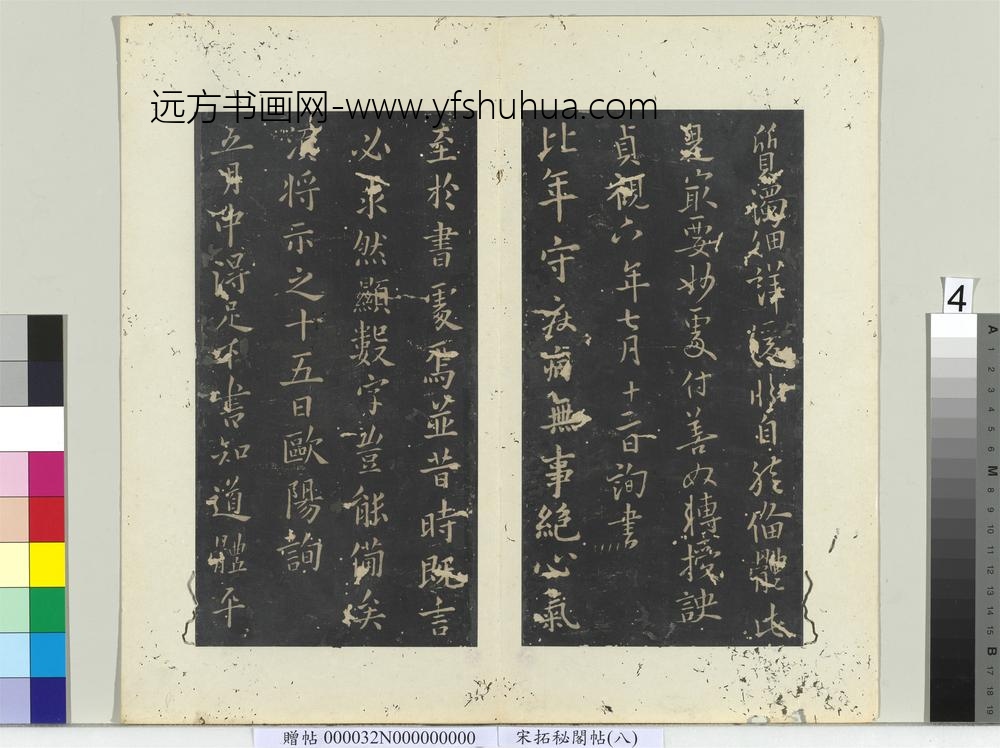 远方书画网-www.yfshuhua.com
質濁細詳緩臨自然備體此
是最要妙處付善奴轉授訣
貞觀六年七月十二日詢書
比年守疾病無事絕心氣
至於書處焉並昔時既言
必求然顯數字豈能備矣
將示之十五日歐陽詢
五月中得足下書知道體平
4
贈帖 000032N000000000
宋拓秘閣帖(八)
A 1 2 3 4 5 6 M 8 9 10 11 12 13 14 15 B 17 18 19